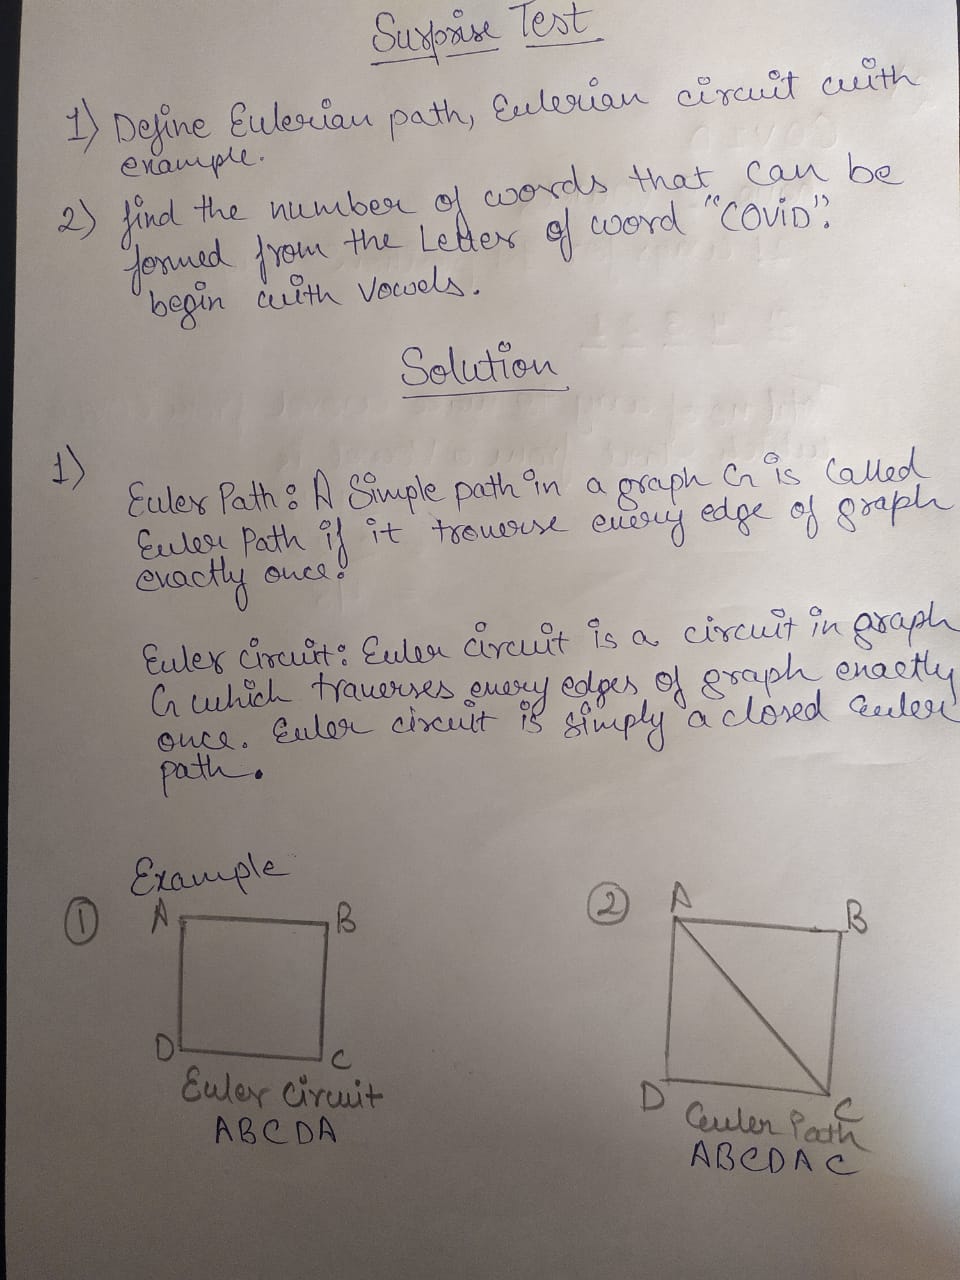 Surprise Test
1) Define Eulerian path, Eulerian circuit with
example.
2) find the number of words that can be
formed from the Letter of word "COVID".
begin with Vowels.
Solution
1)
Euler Path: A Simple path in a graph G is Called
Euler Path if it traverse every edge of graph
exactly once.
Euler Circuit: Euler circuit is a circuit in graph
G which traverses every edges of graph exactly
once. Euler circuit is simply a closed Euler
path.
Example
1 A B
D C
Euler Circuit
ABCDA
2 A B
D C
Euler Path
ABCDAC